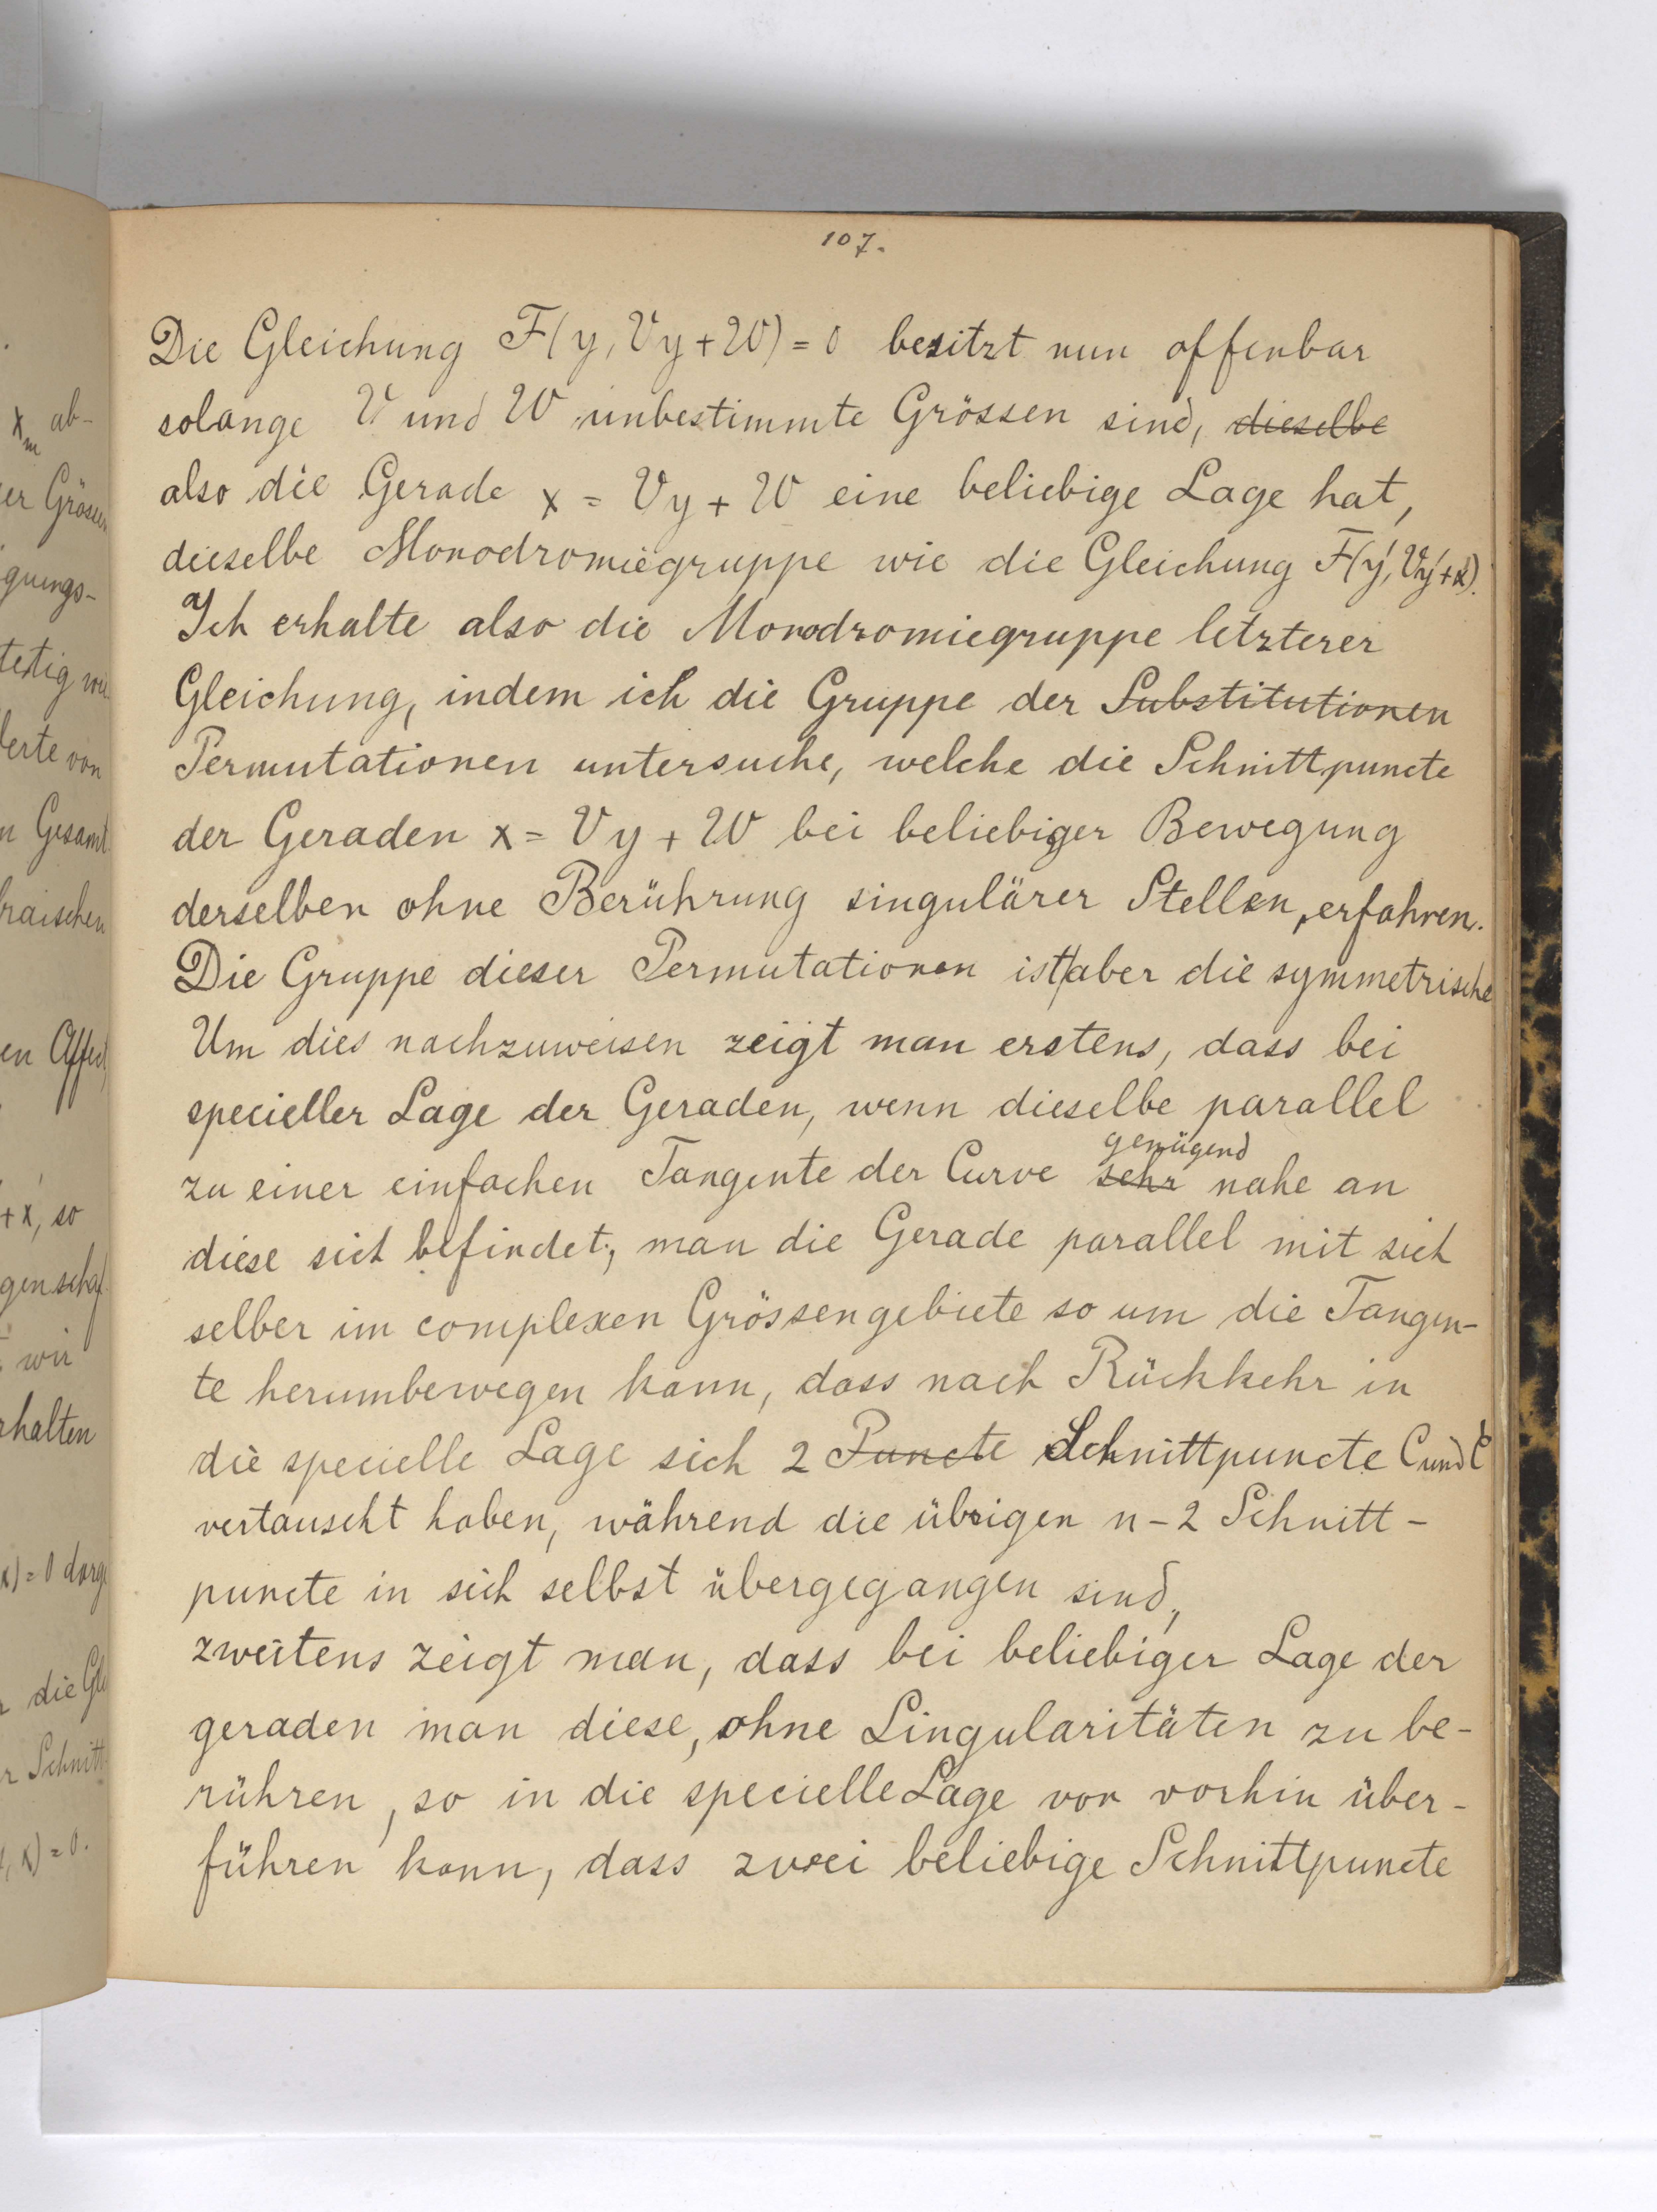 107.
Die Gleichung F(y, Vy + W) = 0 besitzt nun offenbar
solange V und W unbestimmte Grössen sind, dieselbe
also die Gerade x = Vy + W eine beliebige Lage hat,
dieselbe Monodromiegruppe wie die Gleichung F(y', Vy'+x').
Ich erhalte also die Monodromiegruppe letzterer
Gleichung, indem ich die Gruppe der Substitutionen
Permutationen untersuche, welche die Schnittpuncte
der Geraden x = Vy + W bei beliebiger Bewegung
derselben ohne Berührung singulärer Stellen, erfahren.
Die Gruppe dieser Permutationen ist aber die symmetrische
Um dies nachzuweisen zeigt man erstens, dass bei
specieller Lage der Geraden, wenn dieselbe parallel
genügend
zu einer einfachen Tangente der Curve sehr nahe an
diese sich befindet, man die Gerade parallel mit sich
selber im complexen Grössengebiete so um die Tangen-
te herumbewegen kann, dass nach Rückkehr in
die specielle Lage sich 2 Puncte Schnittpuncte C und C'
vertauscht haben, während die übrigen n-2 Schnitt-
puncte in sich selbst übergegangen sind,
zweitens zeigt man, dass bei beliebiger Lage der
geraden man diese, ohne Singularitäten zu be-
rühren, so in die specielle Lage von vorhin über-
führen kann, dass zwei beliebige Schnittpuncte
x_m ab-
er Grössen
gungs-
tetig wie
erte von
n Gesamt
braischen
en Affect
+ x, so
genschaf
wir
erhalten
x) = 0 darge
die Gle
r Schnitt
, x) = 0.